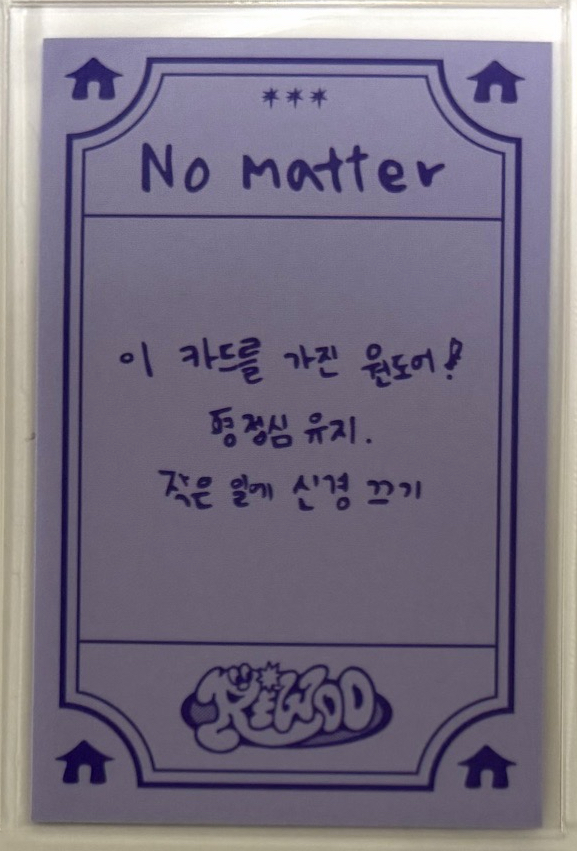 ***
No matter
이 카드를 가진 원도어!
평정심 유지.
작은 일에 신경 끄기
REWOO